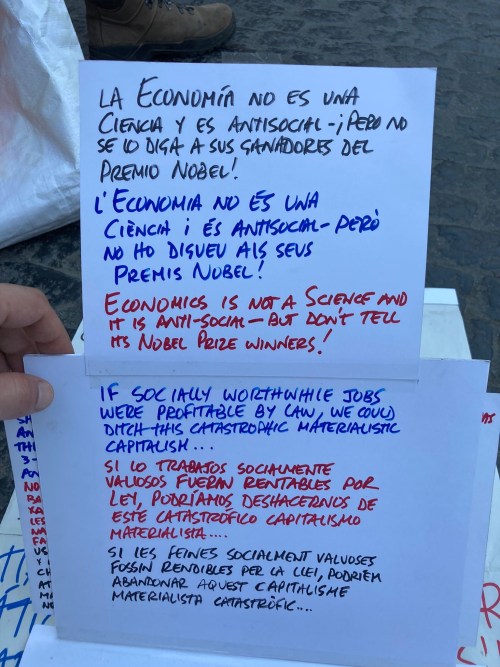 LA ECONOMÍA NO ES UNA
CIENCIA Y ES ANTISOCIAL-¡PERO NO
SE LO DIGA A SUS GANADORES DEL
PREMIO NOBEL!
L'ECONOMIA NO ÉS UNA
CIÈNCIA i ÉS ANTISOCIAL-PERÒ
NO HO DIGUEU ALS SEUS
PREMIS NOBEL!
ECONOMICS IS NOT A SCIENCE AND
IT IS ANTI-SOCIAL-BUT DON'T TELL
ITS NOBEL PRIZE WINNERS!
IF SOCIALLY WORTHWHILE JOBS
WERE PROFITABLE BY LAW, WE COULD
DITCH THIS CATASTROPHIC MATERIALISTIC
CAPITALISM...
SI LO TRABAJOS SOCIALMENTE
VALIOSOS FUERAN RENTABLES POR
LEY, PODRÍAMOS DESHACERNOS DE
ESTE CATASTRÓFICO CAPITALISMO
MATERIALISTA....
SI LES FEINES SOCIALMENT VALUOSES
FOSSIN RENDIBLES PER LA LLEI, PODRÍEM
ABANDONAR AQUEST CAPITALISME
MATERIALISTA CATASTRÒFIC....